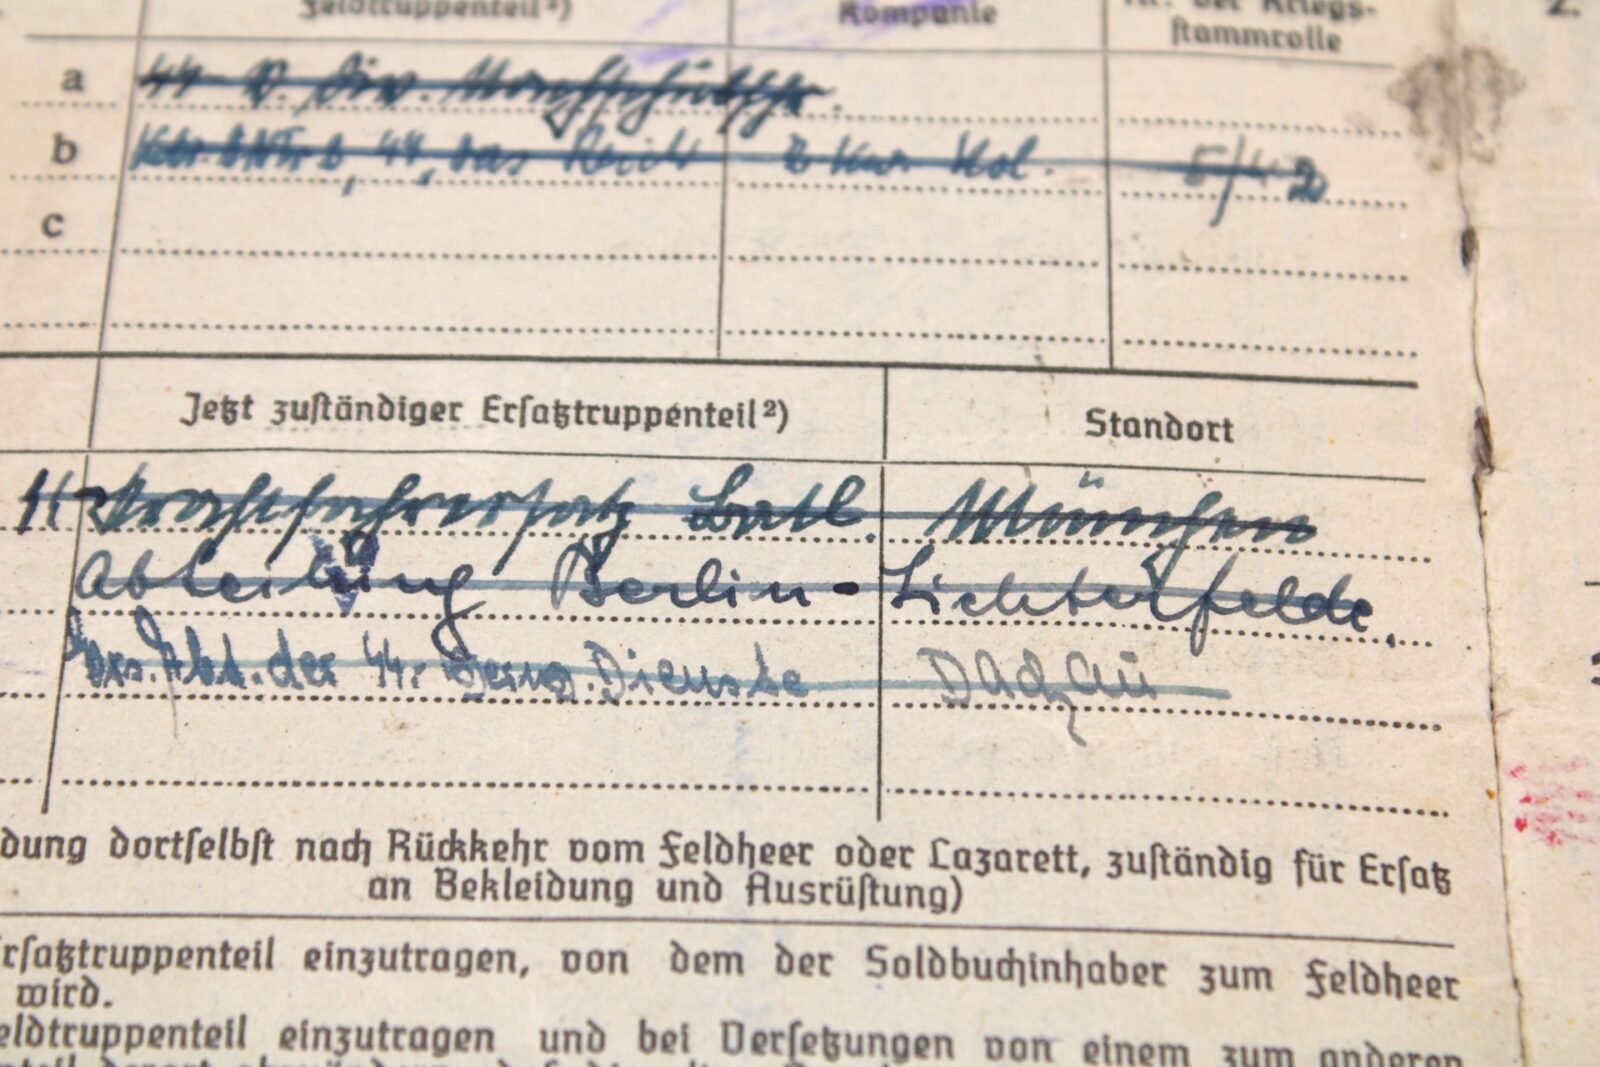 Feldtruppenteil²)
Kompanie
Nr. der Kriegs-
stammrolle
2.
a
44 - D. Div.
b
44 „das Reich
Kw. Kol.
5/42
c
Jetzt zuständiger Ersatztruppenteil²)
Standort
44 Kraftfahrersatz Batl.
München
Abteilung Berlin-Lichterfelde.
Ers. Abt. der 44. Dienste
Dachau
dung dortselbst nach Rückkehr vom Feldheer oder Lazarett, zuständig für Ersatz
an Bekleidung und Ausrüstung)
rsatztruppenteil einzutragen, von dem der Soldbuchinhaber zum Feldheer
wird.
eldtruppenteil einzutragen und bei Versetzungen von einem zum anderen